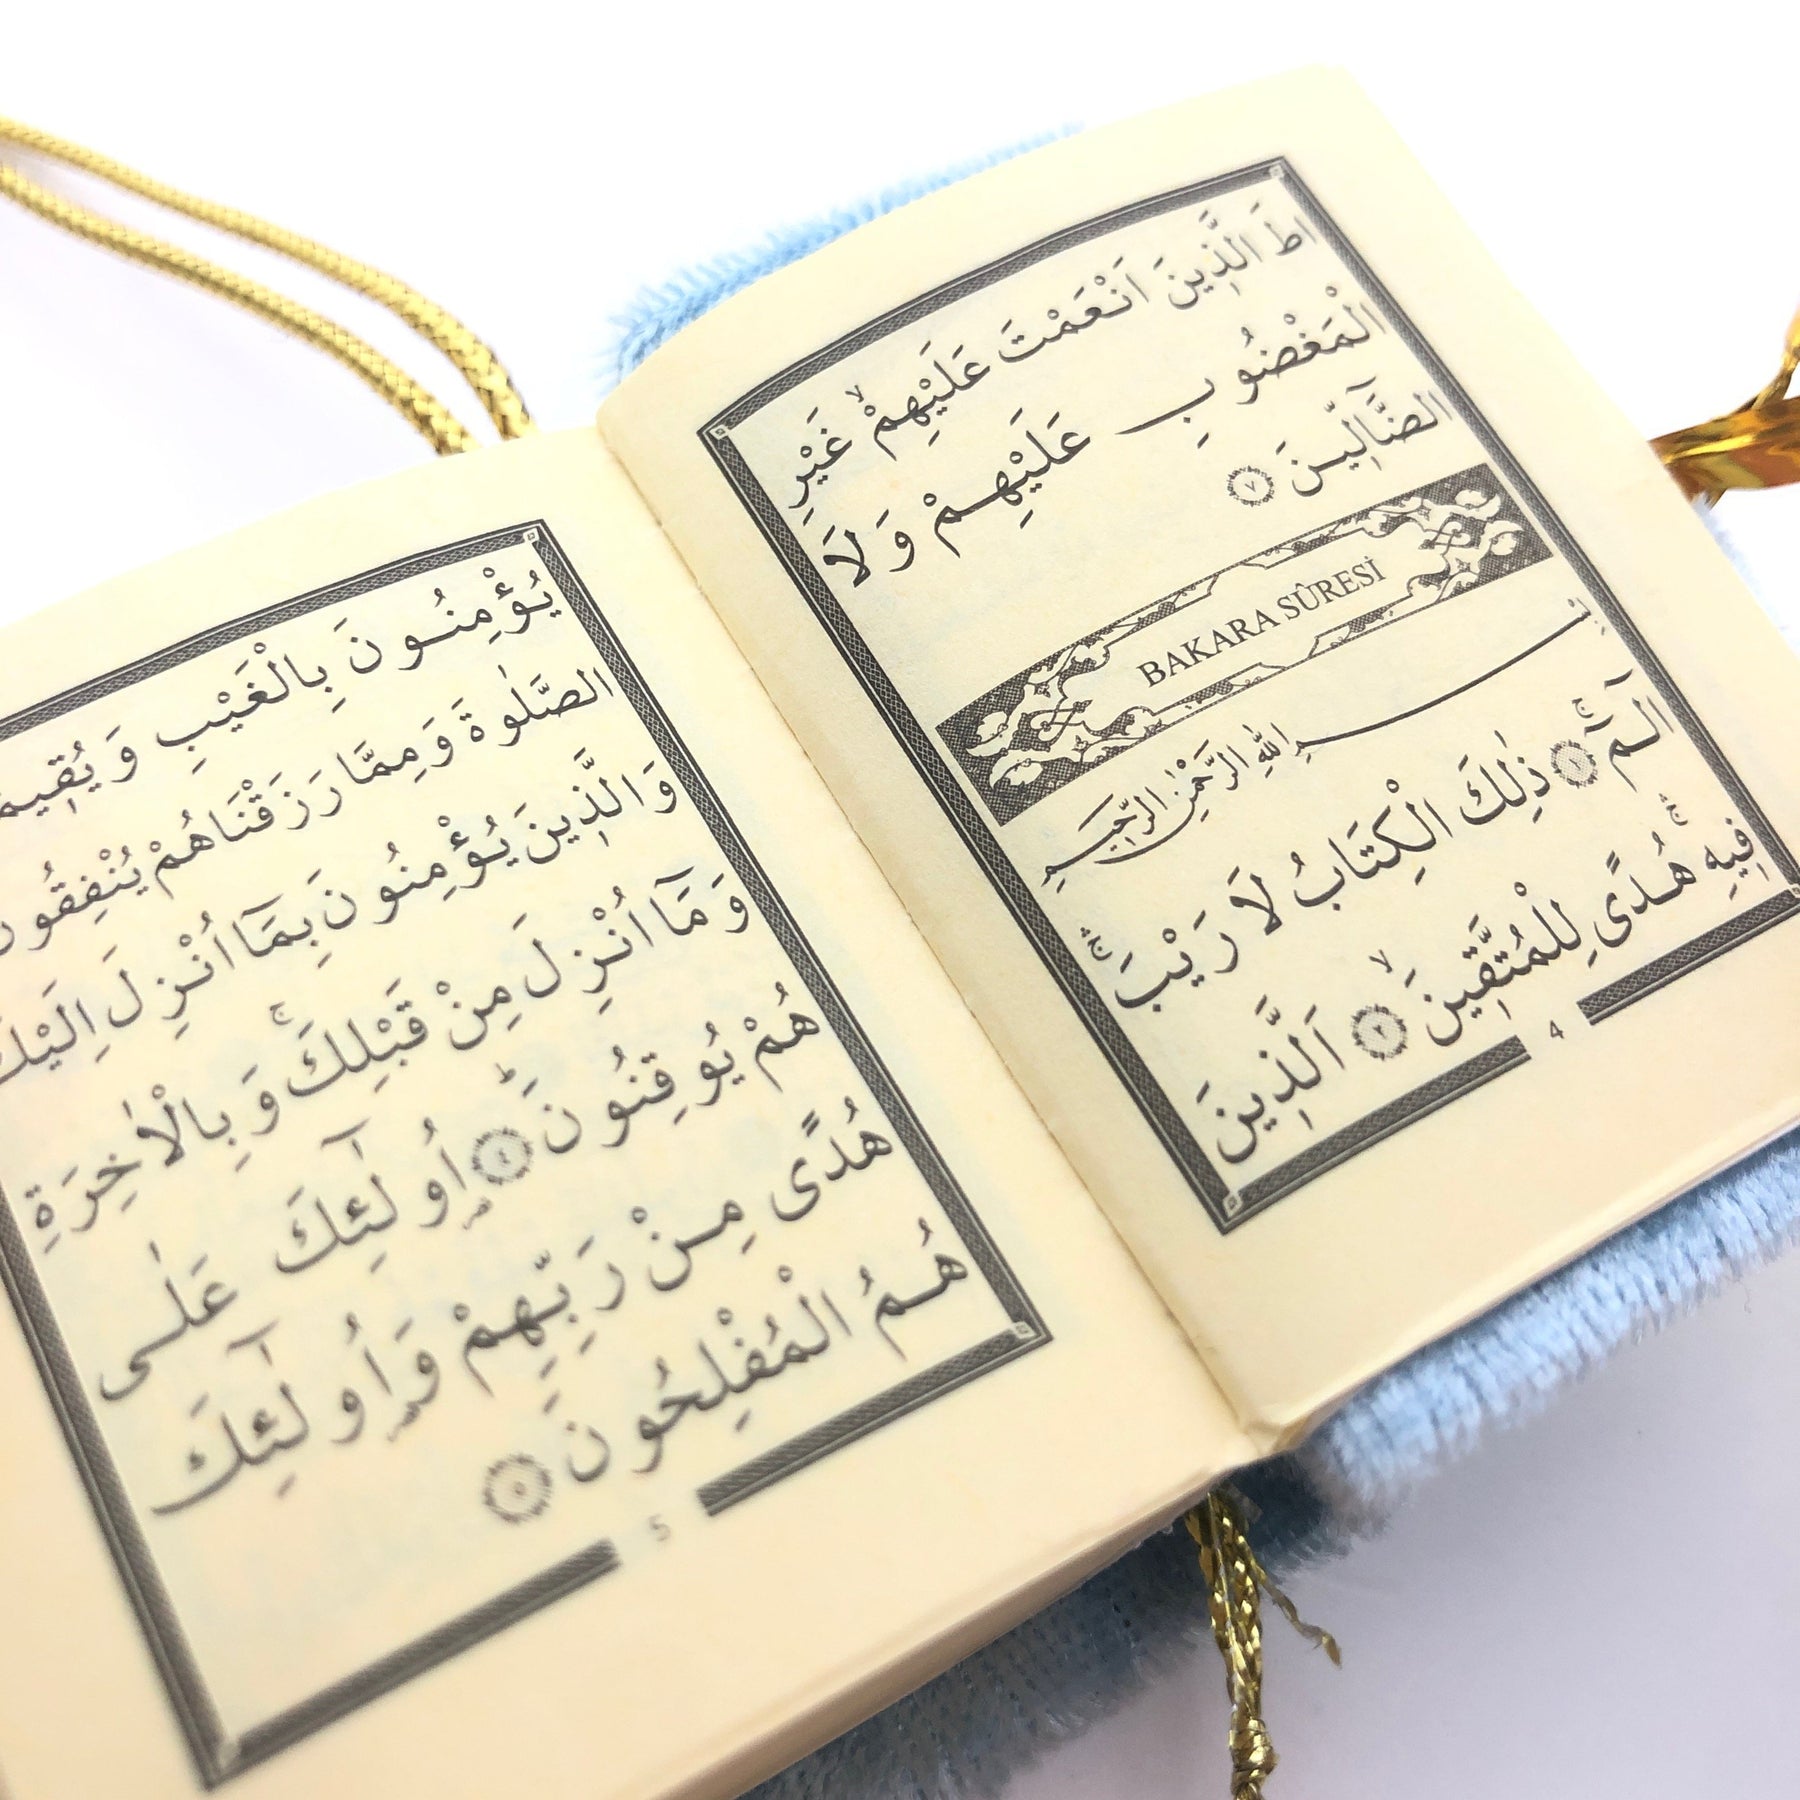 اطَ الَّذِينَ اَنْعَمْتَ عَلَيْهِمْۙ غَيْرِ
الْمَغْضُوبِ عَلَيْهِمْ وَلَا
الضَّٓالِّينَ ﴿٧﴾
BAKARA SÛRESİ
بِسْمِ اللهِ الرَّحْمٰنِ الرَّحِيمِ
الٓمٓۚ ﴿١﴾ ذٰلِكَ الْكِتَابُ لَا رَيْبَۚ
فِيهِۚ هُدًى لِلْمُتَّقِينَۙ ﴿٢﴾ اَلَّذِينَ
4
يُؤْمِنُونَ بِالْغَيْبِ وَيُقِيمُ
الصَّلٰوةَ وَمِمَّا رَزَقْنَاهُمْ يُنْفِقُونَ
وَالَّذِينَ يُؤْمِنُونَ بِمَٓا اُنْزِلَ اِلَيْكَ
وَمَٓا اُنْزِلَ مِنْ قَبْلِكَۚ وَبِالْاٰخِرَةِ
هُمْ يُوقِنُونَۜ ﴿٤﴾ اُو۬لٰٓئِكَ عَلٰى
هُدًى مِنْ رَبِّهِمْ وَاُو۬لٰٓئِكَ
هُمُ الْمُفْلِحُونَ ﴿٥﴾
5